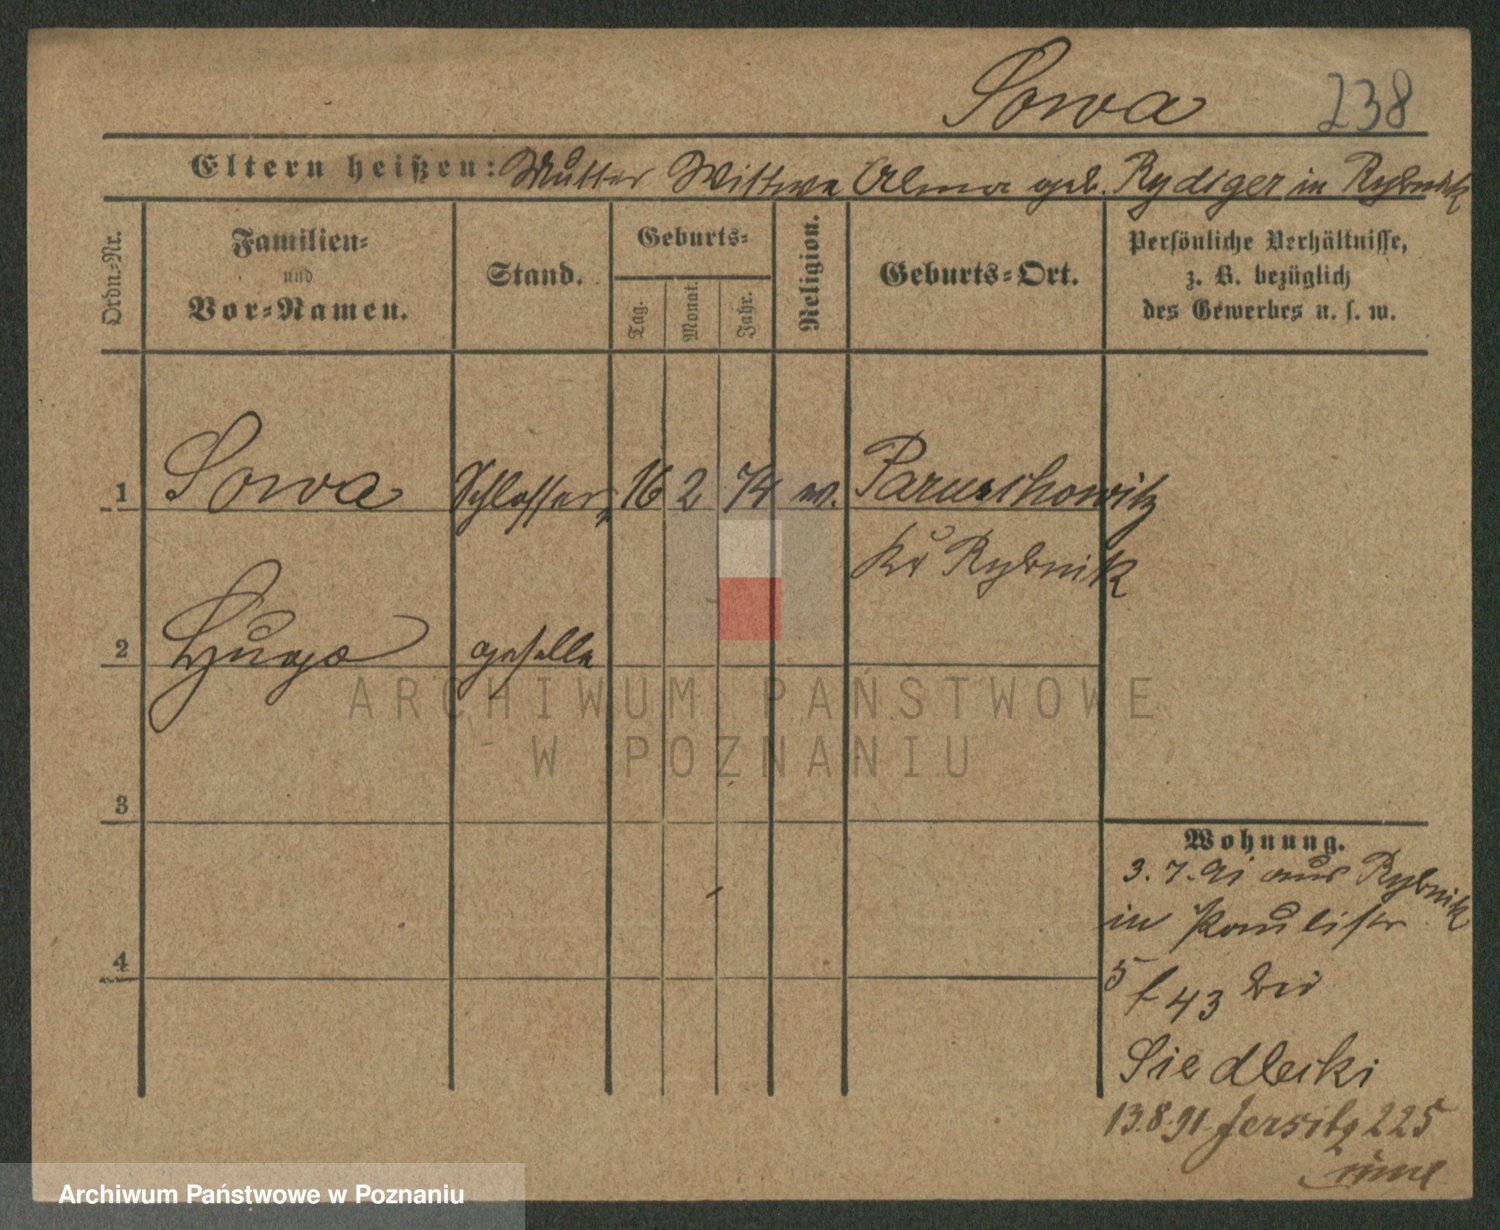 Sowa 238
Eltern heißen: Mutter Wittwe Alma geb. Rydiger in Rybnik
Ordn.-Nr.
Familien-
und
Vor-Namen.
Stand.
Geburts-
Tag.
Monat.
Jahr.
Religion.
Geburts-Ort.
Persönliche Verhältnisse,
z. B. bezüglich
des Gewerbes u. s. w.
1 Sowa Schlosser 16 2 74 Paruschowitz
Kr Rybnik
2 Hugo geselle
3
4
Wohnung.
3. 7. 91 aus Rybnik
in Paulistr
43 bei
Siedlecki
13.8.91 Jersitz 225
ARCHIWUM PAŃSTWOWE
W POZNANIU
Archiwum Państwowe w Poznaniu